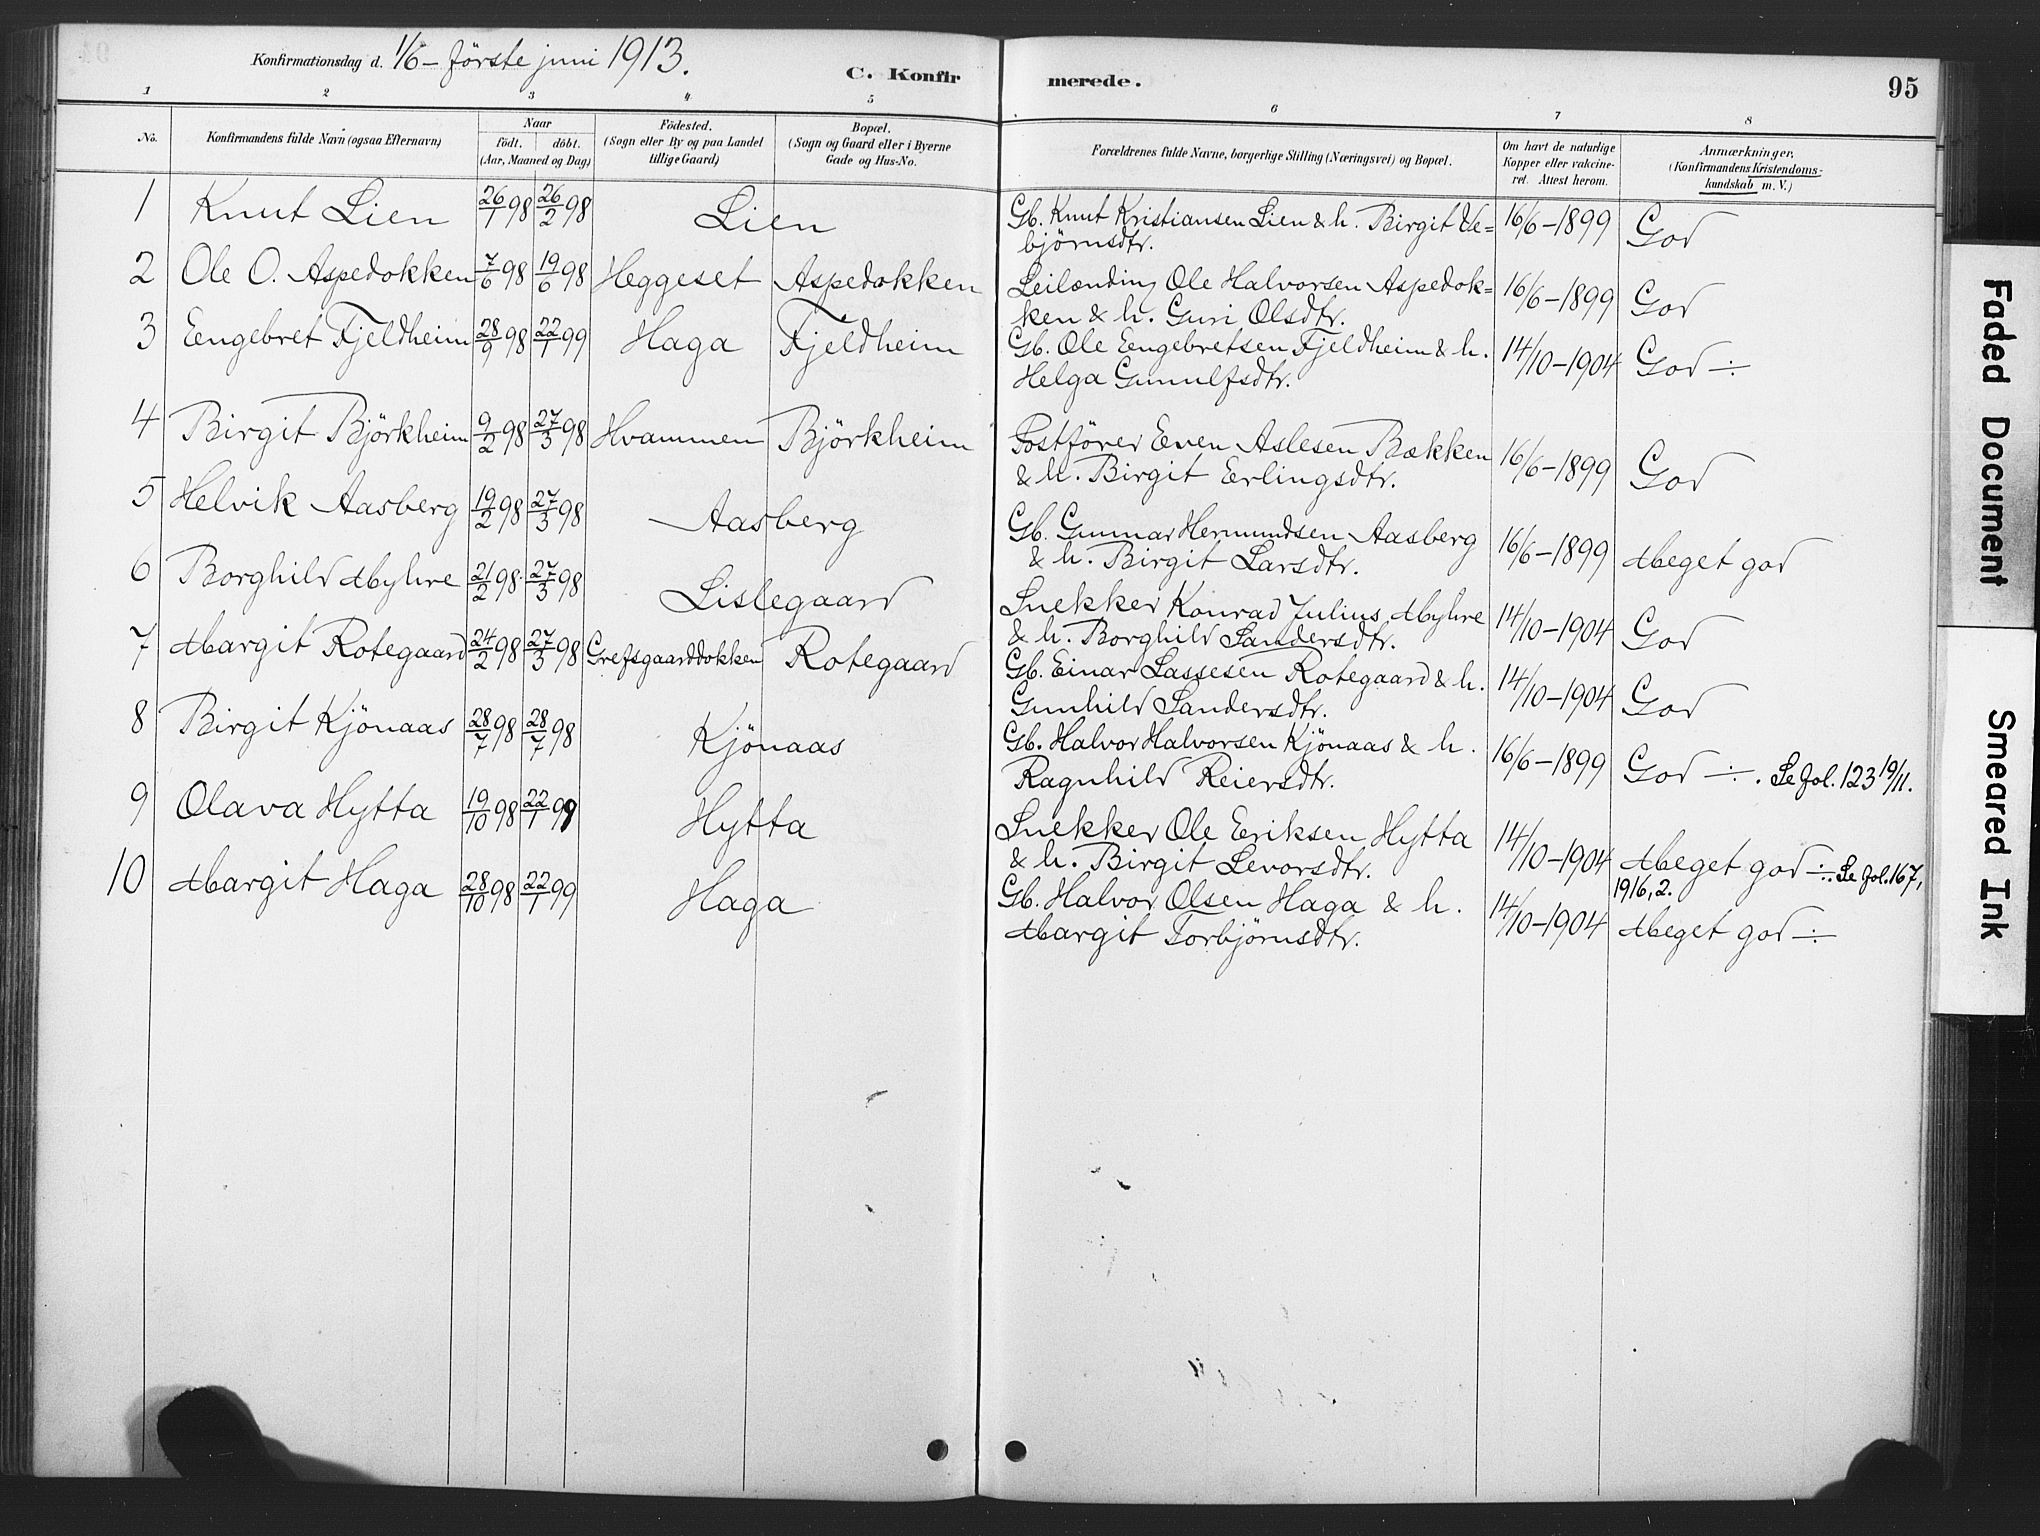 Konfirmationsdag d. 1/6 – förste juni 1913.
C. Konfirmerede.
95
1 2 3 4 5 6 7 8
No.
Konfirmandens fulde Navn (ogsaa Efternavn)
Naar
födt. döbt.
(Aar, Maaned og Dag)
Födested.
(Sogn eller By og paa Landet
tillige Gaard)
Bopæl.
(Sogn og Gaard eller i Byerne
Gade og Hus-No.
Forældrenes fulde Navne, borgerlige Stilling (Næringsvei) og Bopæl.
Om havt de naturlige
Kopper eller vakcine-
ret. Attest herom.
Anmærkninger.
(Konfirmandens Kristendoms-
kundskab m. V.)
1 Knut Lien 26/1 98 26/2 98 Lien Gb. Knut Kristiansen Lien & h. Birgit Ve= 16/6–1899 God
björnsdtr.
2 Ole O. Aspedokken 7/6 98 19/6 98 Heggeset Aspedokken Leilænding Ole Halvorsen Aspedok= 16/6–1899 God
ken & h. Guri Olsdtr.
3 Eengebret Fjeldheim 28/9 98 22/1 99 Haga Fjeldheim Gb. Ole Eengebretsen Fjeldheim & h. 14/10–1904 God ÷
Helga Gunnulfsdtr.
4 Birgit Björkheim 9/2 98 27/3 98 Hvammen Björkheim Postförer Even Aslesen Bækken 16/6–1899 God
& h. Birgit Erlingsdtr.
5 Helvik Aasberg 19/2 98 27/3 98 Aasberg Gb. Gunnar Hermundsen Aasberg 16/6–1899 Meget god
& h. Birgit Larsdtr.
6 Borghild Myhre 21/2 98. 27/3 98 Lislegaard Snekker Konrad Julius Myhre 14/10–1904 God
& h. Borghild Sandersdtr.
7 Margit Rotegaard 24/2 98 27/3 98 Grefsgaarddokken Rotegaard Gb. Einar Lassesen Rotegaard & h. 14/10–1904 God
Gunhild Sandersdtr.
8 Birgit Kjönaas 28/7 98 28/7 98 Kjönaas Gb. Halvor Halvorsen Kjönaas & h. 16/6–1899 God ÷. Se fol. 123 19/11.
Ragnhild Reiersdtr.
9 Olava Hytta 19/10 98 22/1 99 Hytta Snekker Ole Eriksen Hytta 14/10–1904 Meget god ÷. Se fol. 167,
& h. Birgit Levorsdtr. 1916, 2.
10 Margit Haga 28/10 98 22/1 99 Haga Gb. Halvor Olsen Haga & h. 14/10–1904 Meget god ÷
Margit Torbjörnsdtr.
Faded Document
Smeared Ink